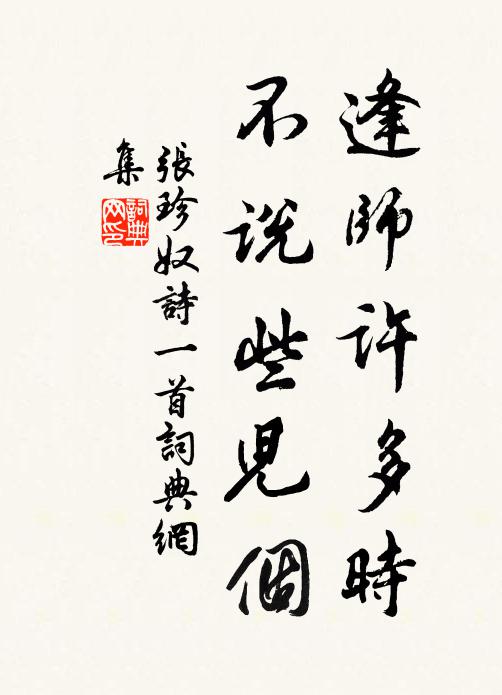 逢師許多時
不說些兒個
張珍奴詩一首詞典網
集
詞典
网印